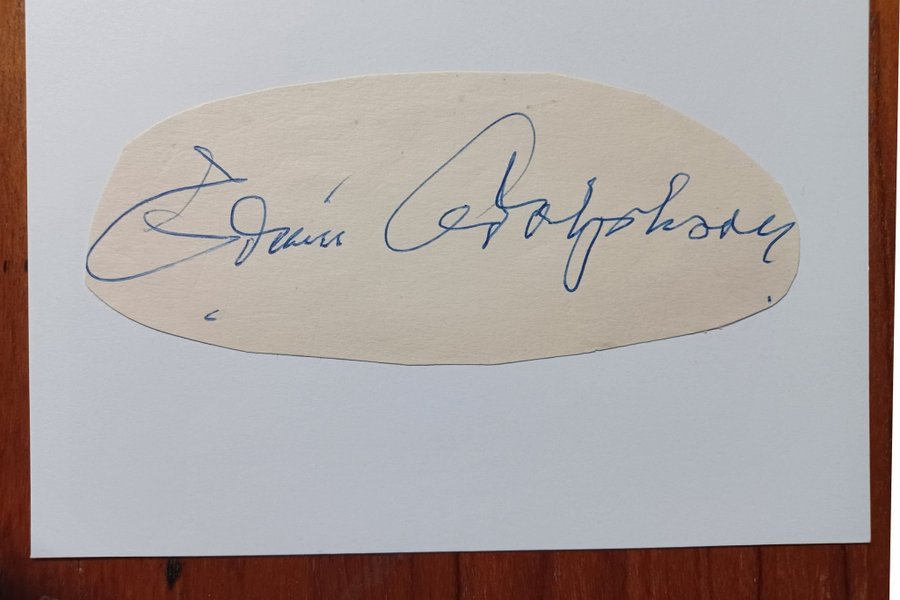 Edvin Adolphson